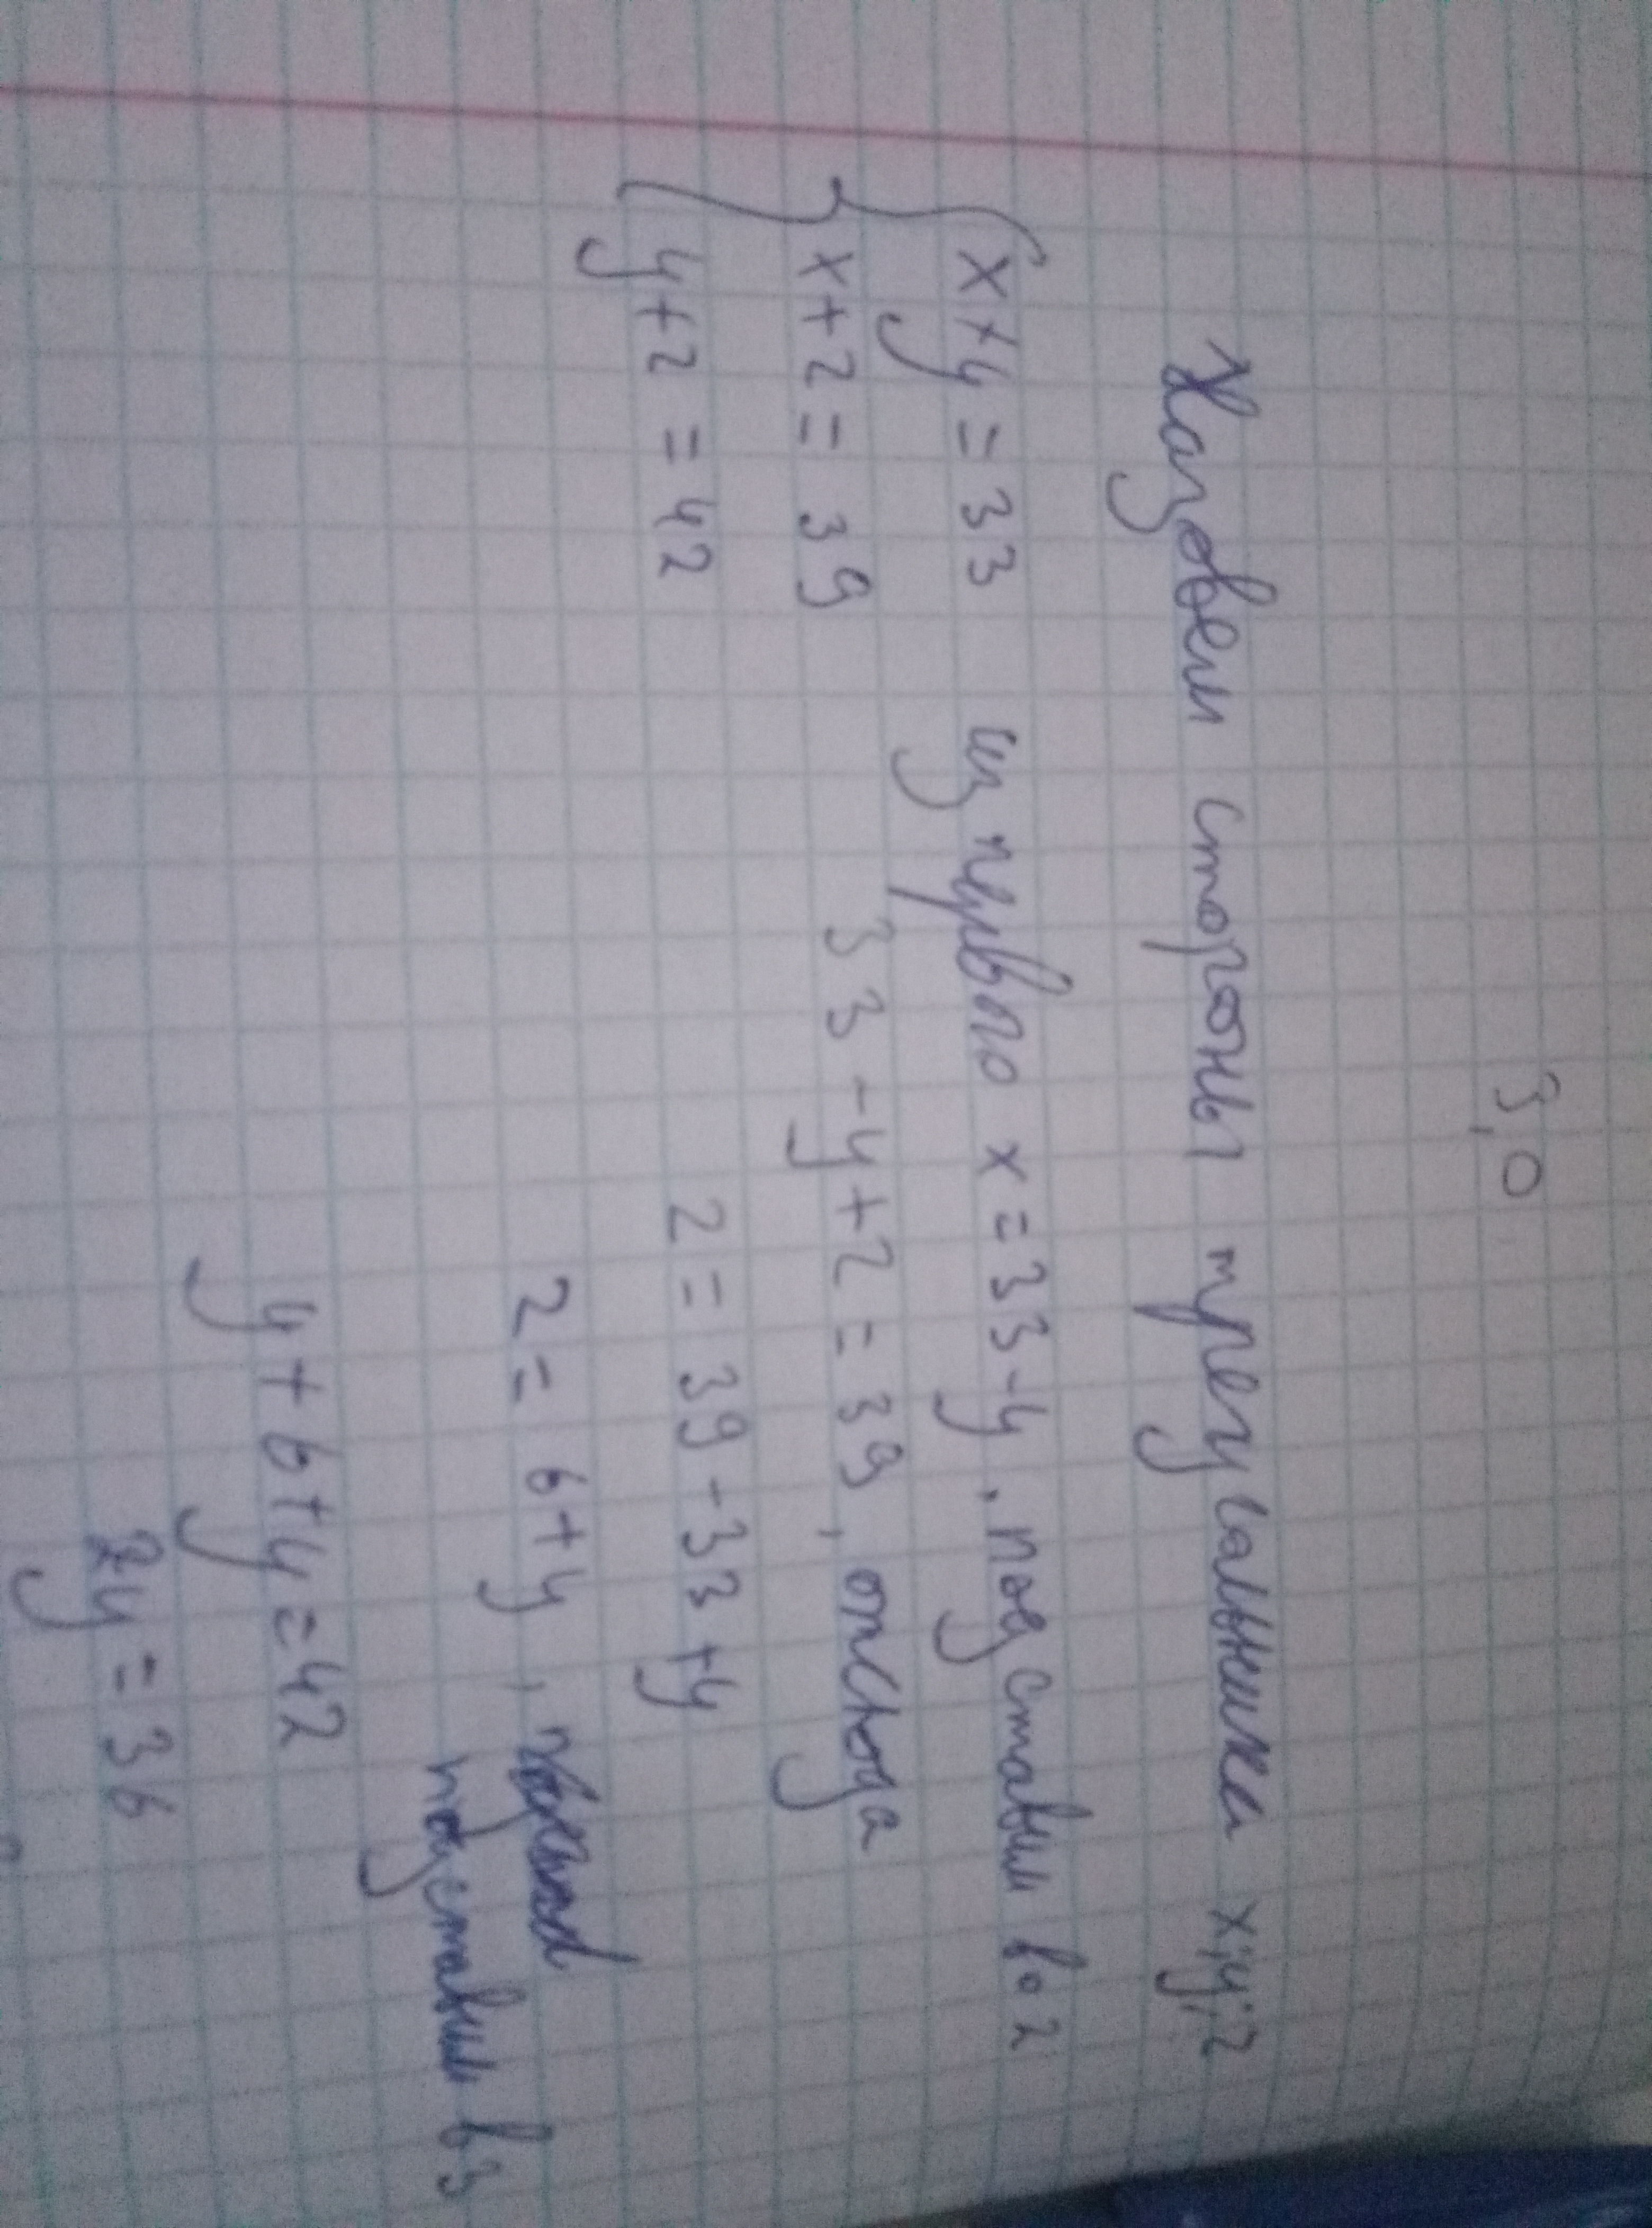 3,0
Назовем стороны треугольника x; y; z
x+y=33 из первого x=33-y, подставим во 2
x+z=39 33-y+z=39, отсюда
y+z=42 z=39-33+y
z=6+y,
подставим в 3
y+6+y=42
2y=36